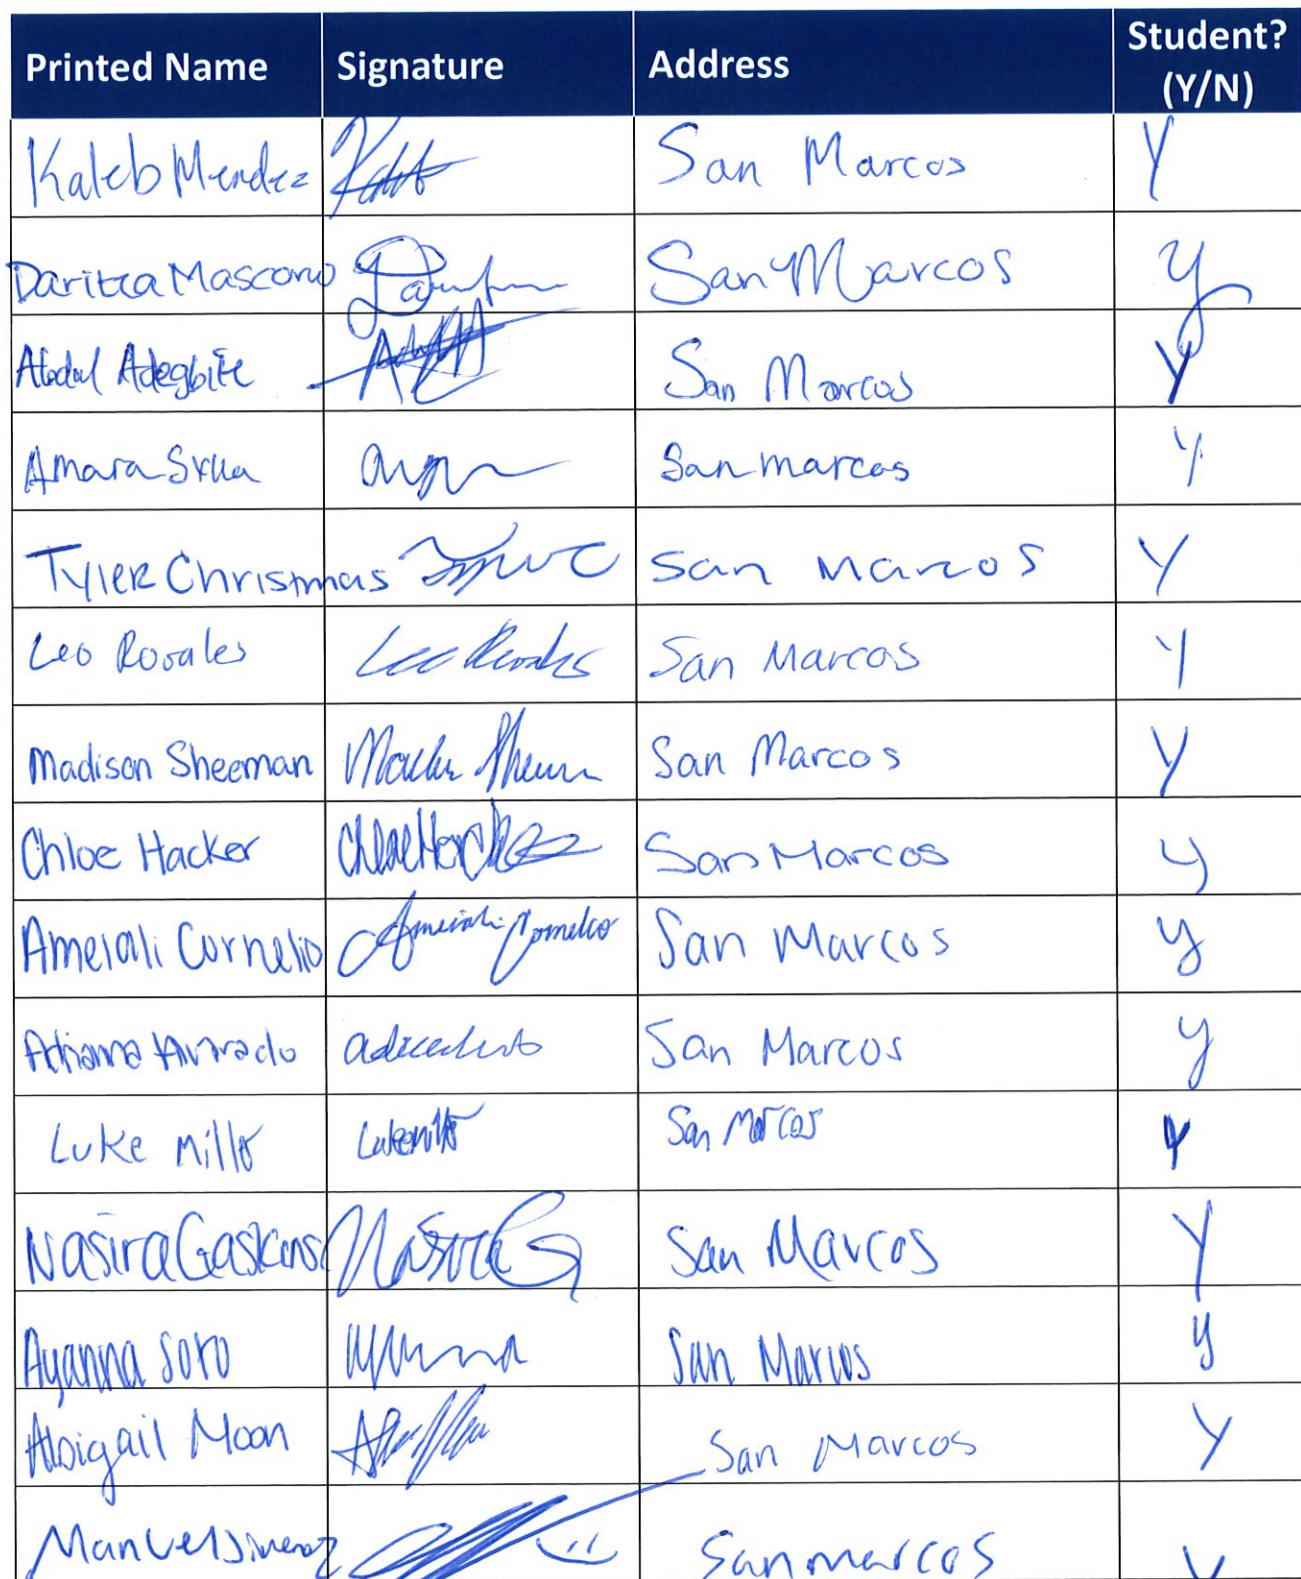 Printed Name Signature Address Student? (Y/N)
Kaleb Mendez San Marcos Y
Daritza Mascorro San Marcos y
Abdul Adegbite San Marcos Y
Amara San marcos Y
Tyler Christmas San Marcos Y
Leo Rosales Leo Rosales San Marcos Y
Madison Sheeman San Marcos Y
Chloe Hacker Chloe Hacker San Marcos y
Ameiali Cornelio Ameiali Cornelio San Marcos y
Adrianna Alvarado San Marcos y
Luke Mills San Marcos Y
Nasira Gaskins Nasira G San Marcos Y
Ayanna Soto San Marcos y
Abigail Moon San Marcos Y
Manuel Jimenez San marcos Y